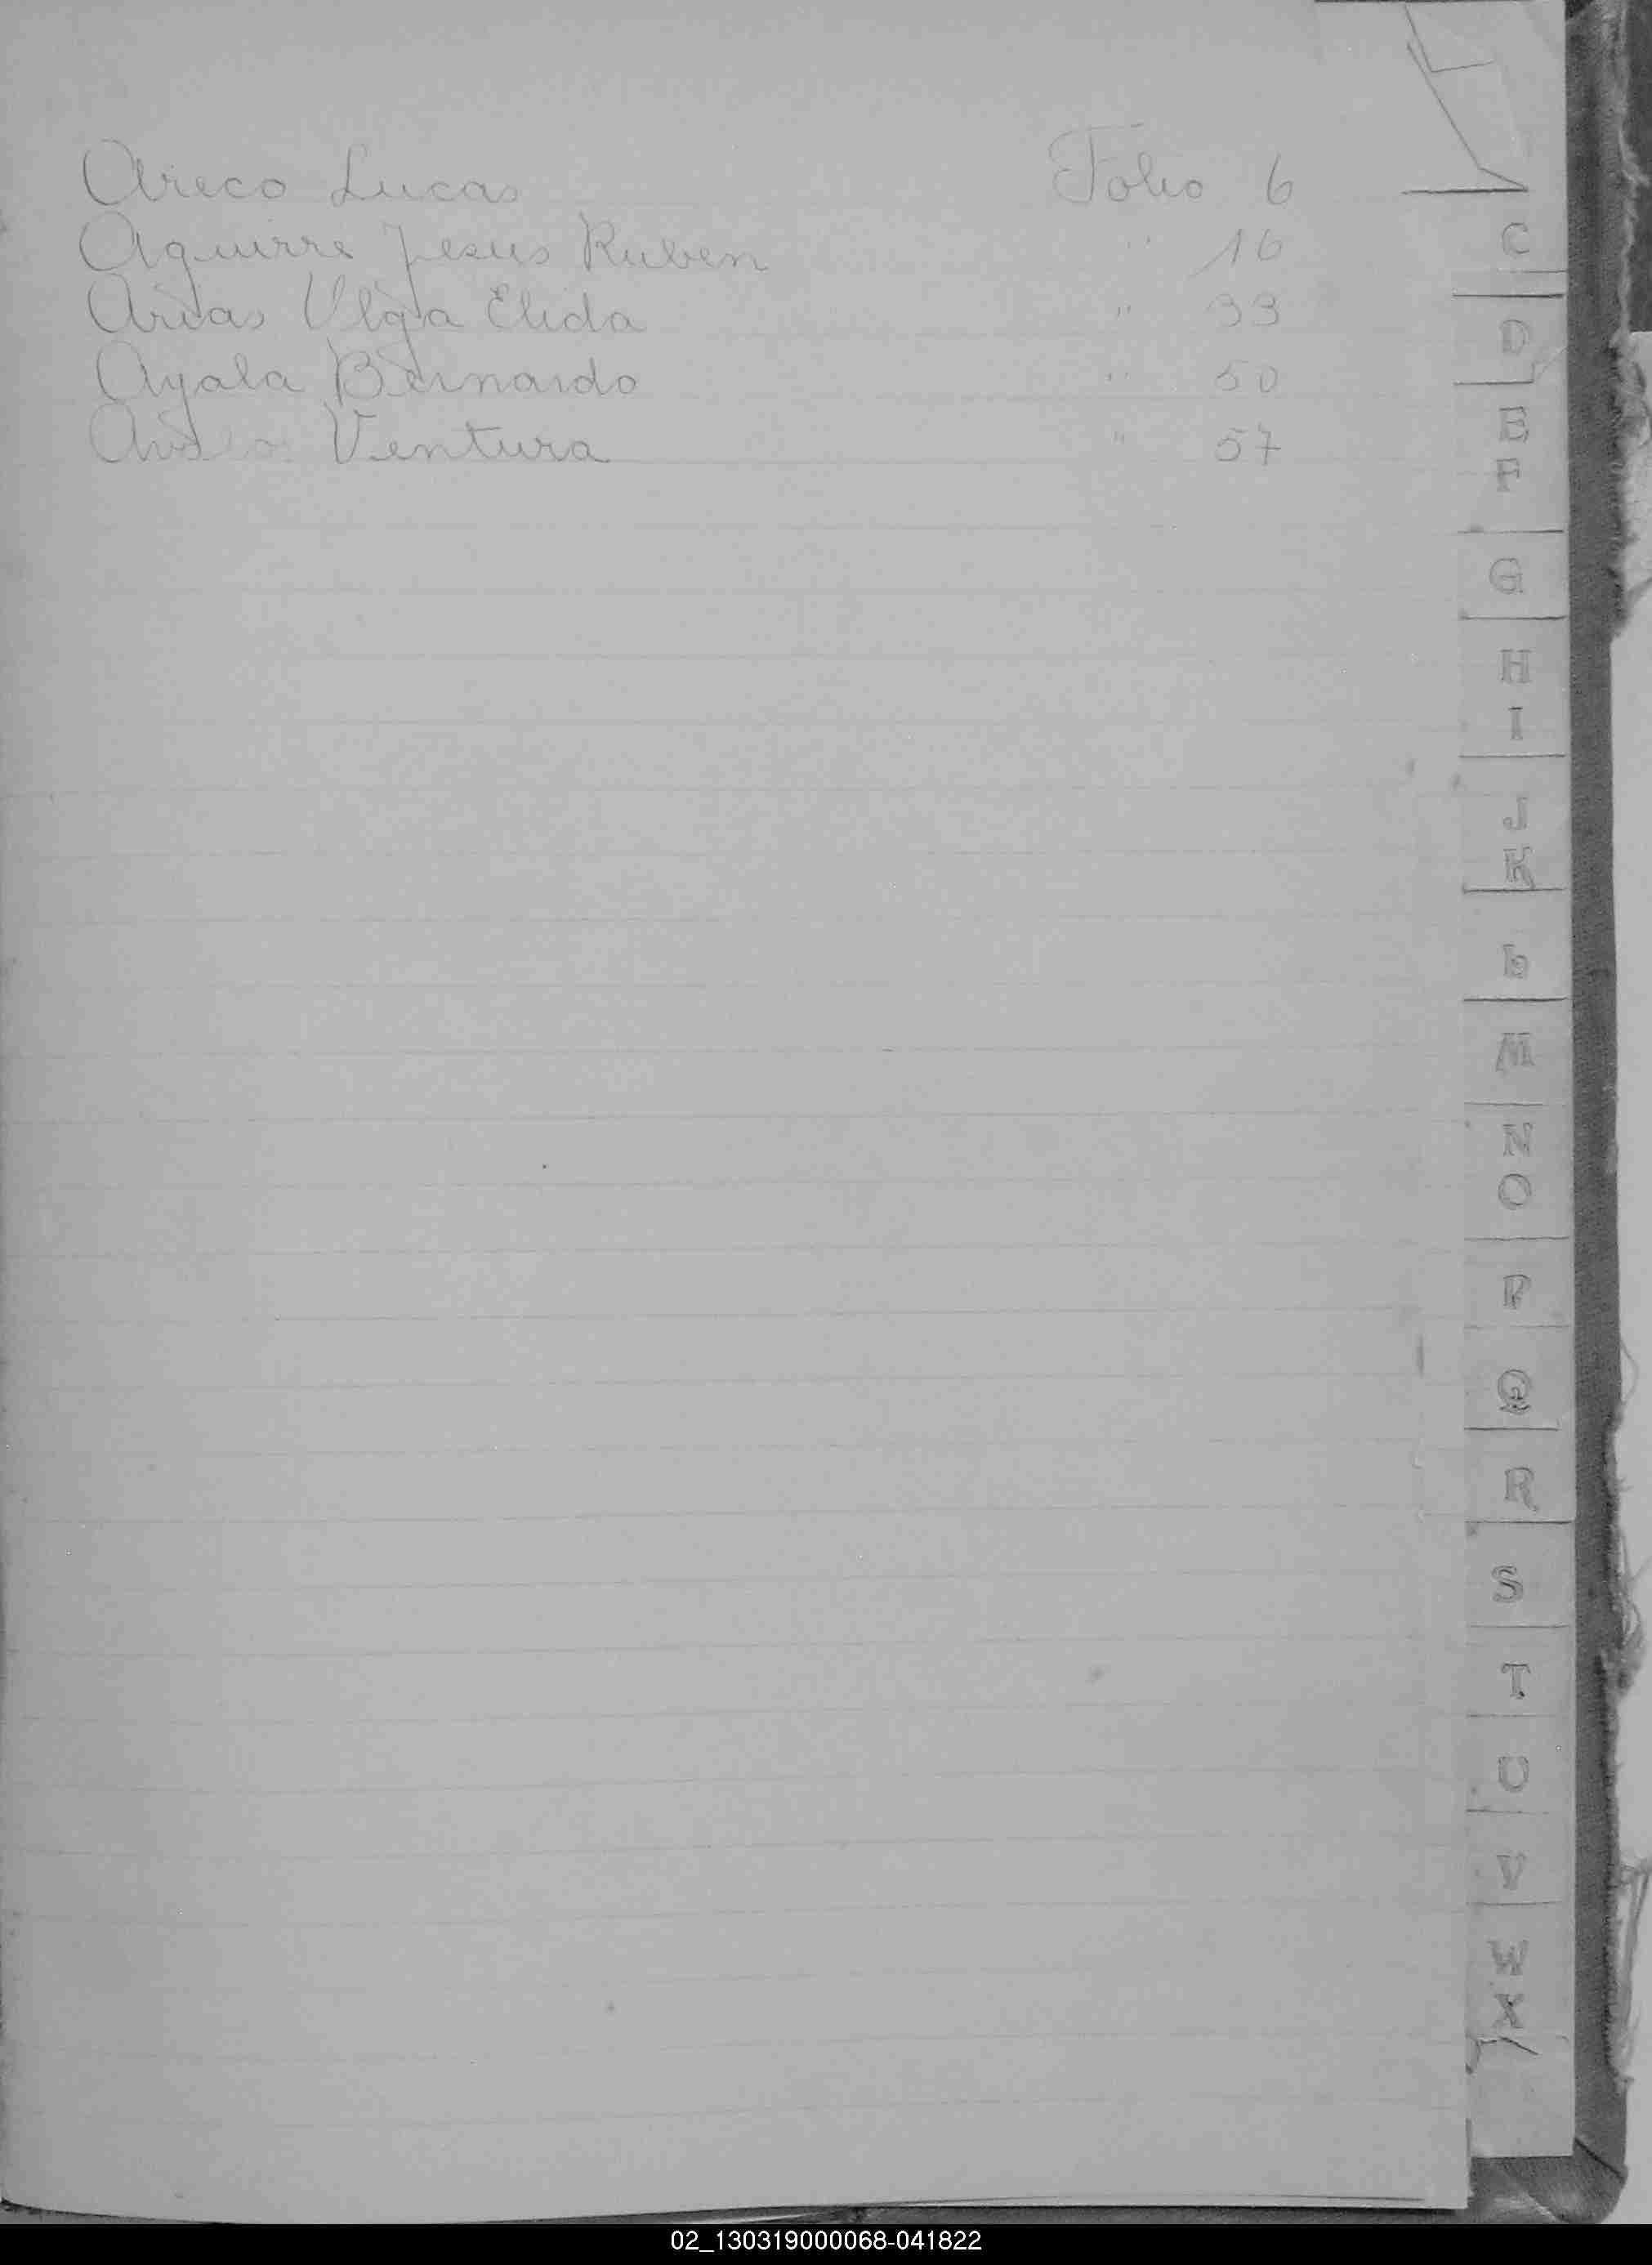 Areco Lucas Folio 6
Aguirre Jesus Ruben " 16
Arias Olga Elida " 33
Ayala Bernardo " 50
Ventura " 57
C
D
E
F
G
H
I
J
K
L
M
N
O
P
Q
R
S
T
U
V
W
X
Y
02_130319000068-041822